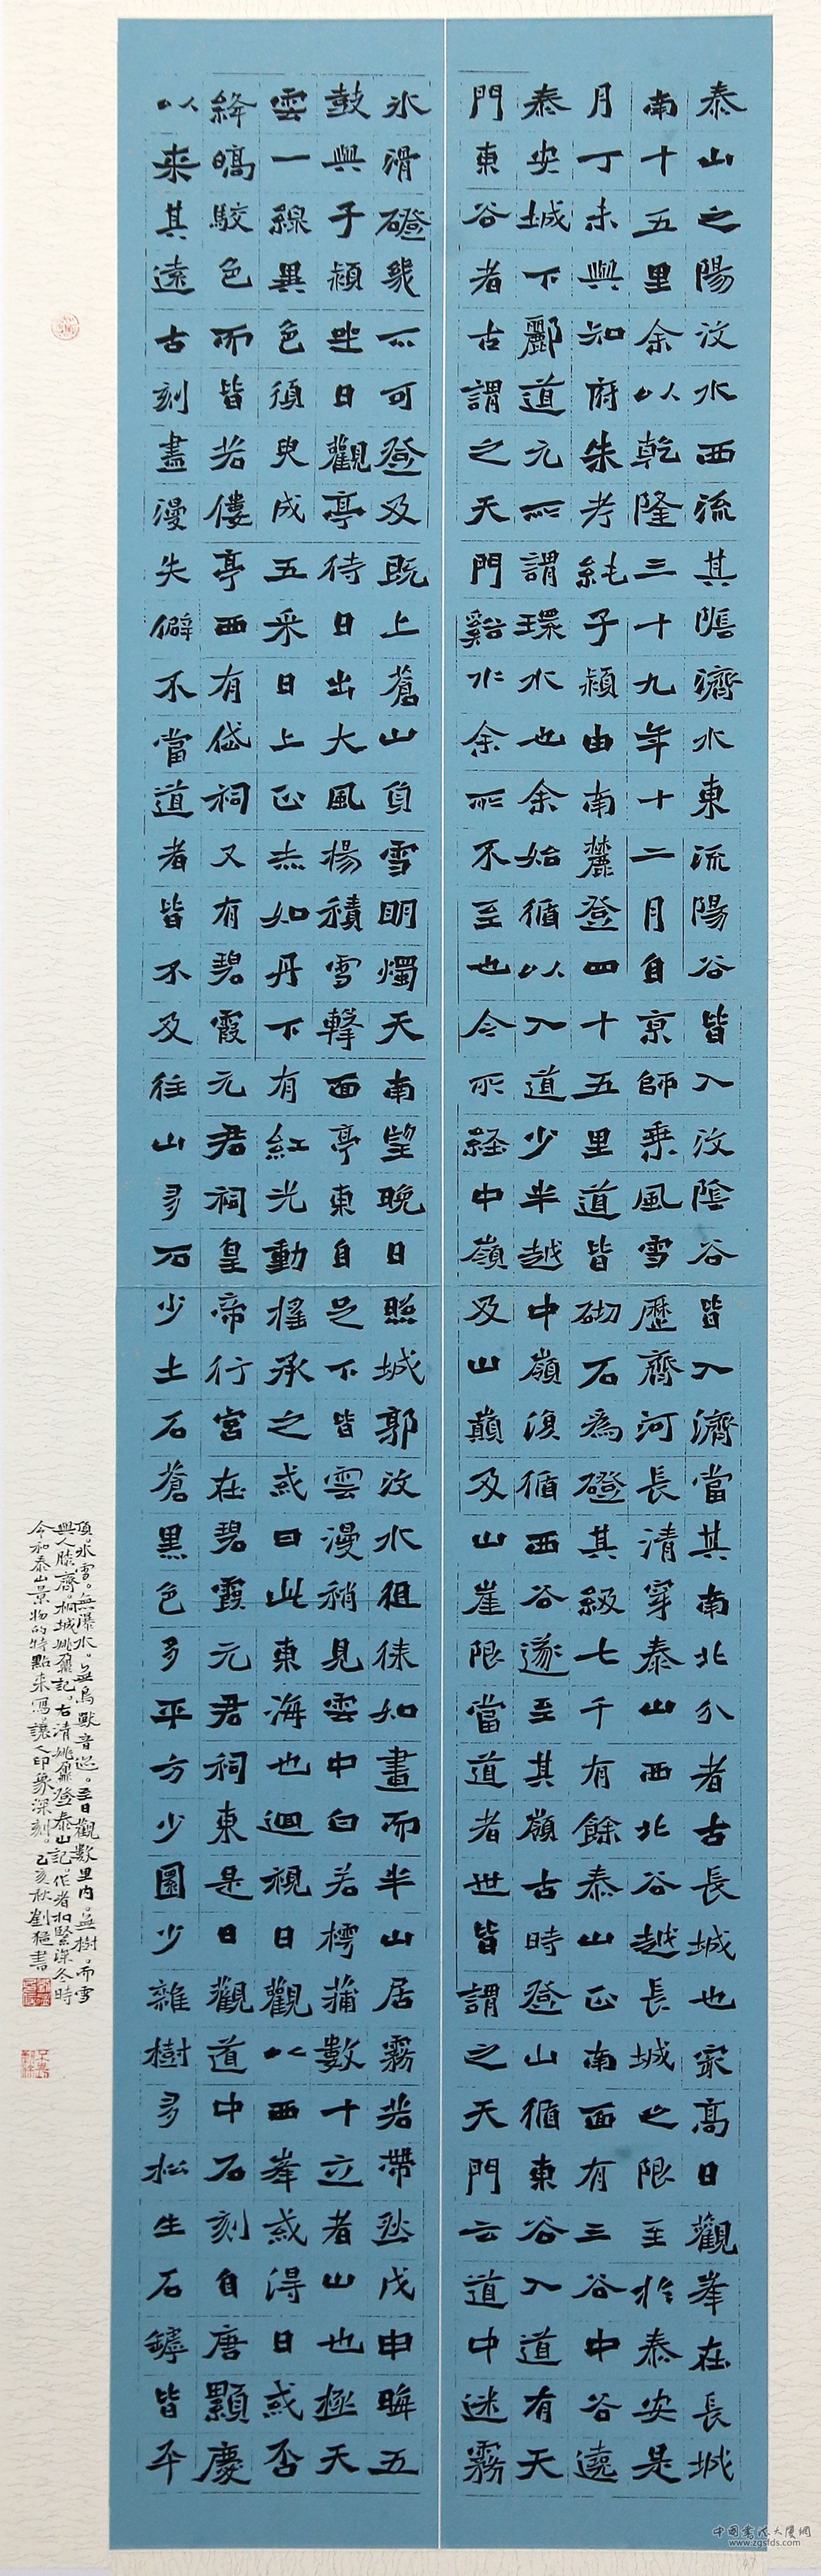 泰山之陽汶水西流其陰濟水東流陽谷皆入汶陰谷皆入濟當其南北分者古長城也㝡高日觀峯在長城
南十五里余以乾隆三十九年十二月自京師乘風雪歷齊河長清穿泰山西北谷越長城之限至於泰安是
月丁未與知府朱考純子頴由南麓登四十五里道皆砌石為磴其級七千有餘泰山正南面有三谷中谷遶
泰安城下酈道元所謂環水也余始循以入道少半越中嶺復循西谷遂至其嶺古時登山循東谷入道有天
門東谷者古謂之天門谿水余所不至也今所經中嶺及山巔及山崖限當道者世皆謂之天門云道中迷霧
冰滑磴幾不可登及既上蒼山負雪明燭天南望晚日照城郭汶水徂徠如畫而半山居霧若帶然戊申晦五
鼓與子頴坐日觀亭待日出大風揚積雪擊面亭東自足下皆雲漫稍見雲中白若樗蒲數十立者山也極天
雲一線異色須臾成五采日上正赤如丹下有紅光動搖承之或曰此東海也迴視日觀以西峯或得日或否
絳皜駮色而皆若僂亭西有岱祠又有碧霞元君祠皇帝行宮在碧霞元君祠東是日觀道中石刻自唐顯慶
以來其遠古刻盡漫失僻不當道者皆不及往山多石少土石蒼黑色多平方少圜少雜樹多松生石罅皆平
頂。冰雪。無瀑水。無鳥獸音迹。至日觀數里內。無樹。而雪
與人膝齊。桐城姚鼐記。右清姚鼐登泰山記。作者扣緊深冬時
令和泰山景物的特點來寫讓人印象深刻。己亥秋劉書
中国書法大厦網
www.zgsfds.com